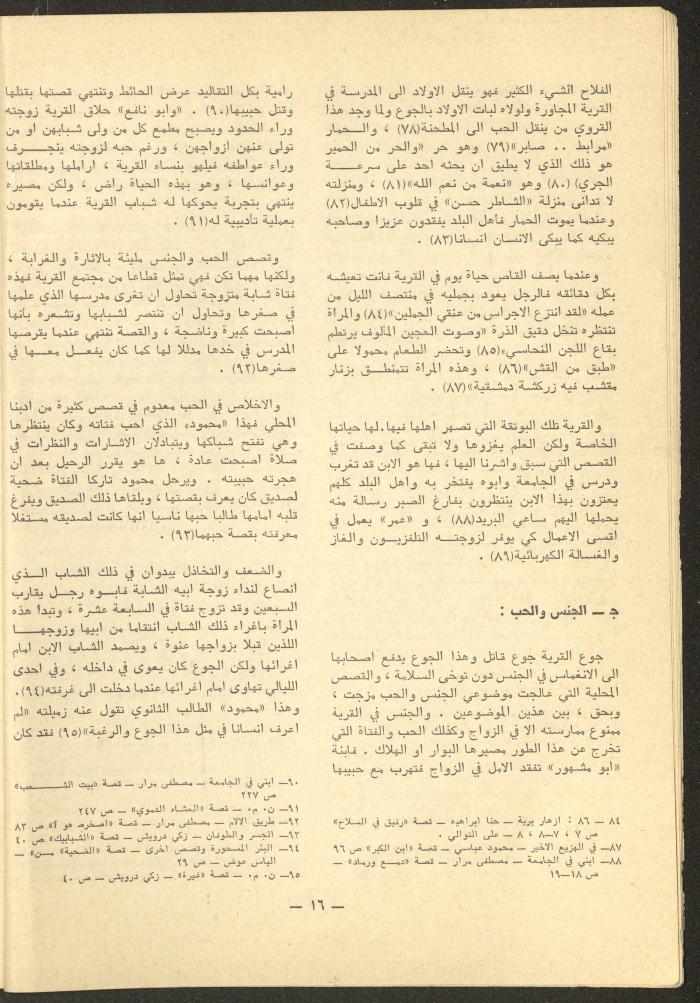 الفلاح الشيء الكثير فهو ينقل الاولاد الى المدرسة في
القرية المجاورة ولولاه لبات الاولاد بالجوع ولما وجد هذا
القروي من ينقل الحب الى المطحنة(٧٨) ، والحمار
«مرابط .. صابر»(٧٩) وهو حر «والحر من الحمير
هو ذلك الذي لا يطيق ان يحثه احد على سرعة
الجري) (٨٠) وهو «نعمة من نعم الله»(٨١) ، ومنزلته
لا تدانى منزلة «الشاطر حسن» في قلوب الاطفال(٨٢)
وعندما يموت الحمار فاهل البلد يفقدون عزيزا وصاحبه
يبكيه كما يبكى الانسان انسانا(٨٣) .
وعندما يصف القاص حياة يوم في القرية فانت تعيشه
بكل دقائقه فالرجل يعود بجمليه في منتصف الليل من
عمله «لقد انتزع الاجراس من عنقي الجملين»(٨٤) والمراة
تنتظره تنخل دقيق الذرة «وصوت العجين المألوف يرتطم
بقاع اللجن النحاسي»(٨٥) وتحضر الطعام محمولا على
«طبق من القش»(٨٦) ، وهذه المراة تتمنطق بزنار
مقشب فيه زركشة دمشقية»(٨٧) .
والقرية تلك البوتقة التي تصهر اهلها فيها.لها حياتها
الخاصة ولكن العلم يغزوها ولا تبقى كما وصفت في
القصص التي سبق واشرنا اليها ، فها هو الابن قد تغرب
ودرس في الجامعة وابوه يفتخر به واهل البلد كلهم
يعتزون بهذا الابن ينتظرون بفارغ الصبر رسالة منه
يحملها اليهم ساعي البريد(٨٨) ، و «عمر» يعمل في
اقسى الاعمال كي يوفر لزوجته التلفزيون والغاز
والغسالة الكهربائية(٨٩) .
جـ ــ الجنس والحب :
جوع القرية جوع قاتل وهذا الجوع يدفع اصحابها
الى الانغماس في الجنس دون توخى السلامة ، والقصص
المحلية التي عالجت موضوعي الجنس والحب مزجت ،
وبحق ، بين هذين الموضوعين . والجنس في القرية
ممنوع ممارسته الا في الزواج وكذلك الحب والفتاة التي
تخرج عن هذا الطور مصيرها البوار او الهلاك . فابنة
«ابو مشهور» تفقد الامل في الزواج فتهرب مع حبيبها
٨٤ ــ ٨٦ : ازهار برية ــ حنا ابراهيم ــ قصة «رفيق في السلاح»
ص ٧ ، ٧ــ٨ ، ٨ ــ على التوالي .
٨٧ــ في الهزيع الاخير ــ محمود عباسي ــ قصة «ابن الكبر» ص ٩٦
٨٨ــ ابني في الجامعة ــ مصطفى مرار ــ قصة «دمع ورماد» ــ
ص ١٨ــ١٩
رامية بكل التقاليد عرض الحائط وتنتهي قصتها بقتلها
وقتل حبيبها(٩٠) . «وابو نافع» حلاق القرية زوجته
وراء الحدود ويصبح مطمع كل من ولى شبابهن او من
تولى عنهن ازواجهن ، ورغم حبه لزوجته ينجرف
وراء عواطفه فيلهو بنساء القرية ، اراملها ومطلقاتها
وعوانسها ، وهو بهذه الحياة راض ، ولكن مصيره
ينتهي بتجربة يحوكها له شباب القرية عندما يقومون
بعملية تأديبية له(٩١) .
وتصص الحب والجنس مليئة بالاثارة والغرابة ،
ولكنها مهما تكن فهي تمثل قطاعا من مجتمع القرية فهذه
فتاة شابة متزوجة تحاول ان تغرى مدرسها الذي علمها
في صغرها وتحاول ان تنتصر لشبابها وتشعره بأنها
اصبحت كبيرة وناضجة ، والقصة تنتهي عندما يقرصها
المدرس في خدها مدللا لها كما كان يفعل معها في
صغرها(٩٢) .
والاخلاص في الحب معدوم في قصص كثيرة من ادبنا
المحلي فهذا «محمود» الذي احب فتاته وكان ينتظرها
وهي تفتح شباكها ويتبادلان الاشارات والنظرات في
صلاة اصبحت عادة ، ها هو يقرر الرحيل بعد ان
هجرته حبيبته . ويرحل محمود تاركا الفتاة ضحية
لصديق كان يعرف بقصتها ، ويلقاها ذلك الصديق ويفرغ
قلبه امامها طالبا حبها ناسيا انها كانت لصديقه مستغلا
معرفته بقصة حبهما(٩٣) .
والضعف والتخاذل يبدوان في ذلك الشاب الذي
انصاع لنداء زوجة ابيه الشابة فابوه رجل يقارب
السبعين وقد تزوج فتاة في السابعة عشرة ، وتبدا هذه
المراة باغراء ذلك الشاب انتقاما من ابيها وزوجها
اللذين قبلا بزواجها عنوة ، ويصمد الشاب الابن امام
اغرائها ولكن الجوع كان يعوى في داخله ، وفي احدى
الليالي تهاوى امام اغرائها عندما دخلت الى غرفته(٩٤).
وهذا «محمود» الطالب الثانوي تقول عنه زميلته «لم
اعرف انسانا في مثل هذا الجوع والرغبة»(٩٥) فقد كان
٩٠ــ ابني في الجامعة ــ مصطفى مرار ــ قصة «بيت الشعب»
ص ٢٢٧
٩١ــ ن. م. ــ قصة «العشاء الدموي» ــ ص ٢٤٧
٩٢ــ طريق الالام ــ مصطفى مرار ــ قصة «اصخره هو ؟» ص ٨٣
٩٣ــ الجسر والطوفان ــ زكي درويش ــ قصة «الشبابيك» ص ٤٠
٩٤ــ البئر المسحورة وقصص اخرى ــ قصة «الضحية» مــن ــ
الياس عوض ــ ص ٢٩
٩٥ــ ن. م. ــ قصة «غيرة» ــ زكي درويش ــ ص ٤٠
ــ ١٦ ــ